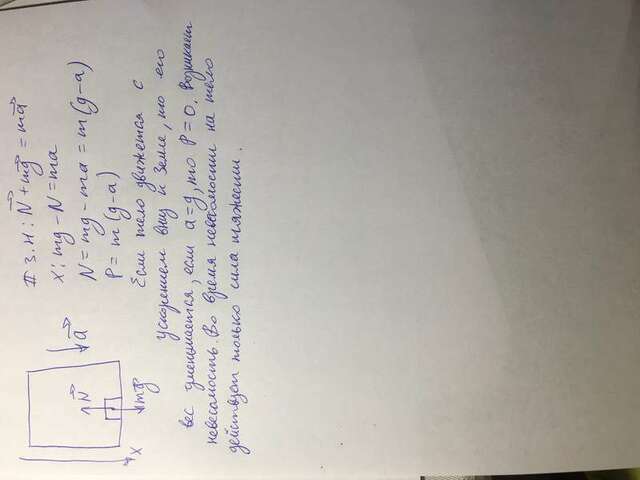 II З. Н: N⃗ + mg⃗ = ma⃗
x: mg - N = ma
N⃗
a⃗
N = mg - ma = m(g-a)
P = m(g-a)
x
mg⃗
Если тело движется с
ускорением вниз к Земле, то его
вес уменьшается, если a=g, то P=0. Возникает
невесомость. Во время невесомости на тело
действует только сила тяжести.